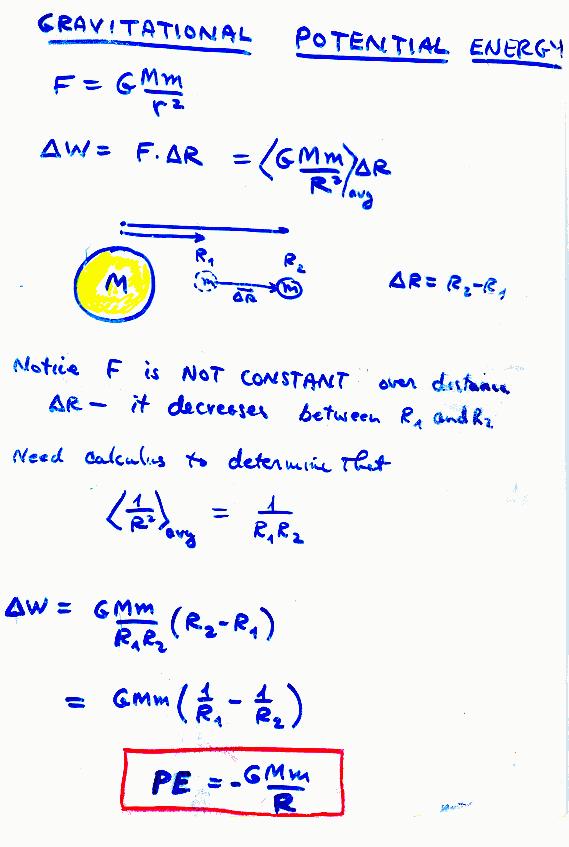 GRAVITATIONAL POTENTIAL ENERGY
F = G Mm/r²
ΔW = F·ΔR = ⟨G Mm/R²⟩avg ΔR
R₁ R₂
M m ΔR m ΔR = R₂-R₁
Notice F is NOT CONSTANT over distance
ΔR — it decreases between R₁ and R₂
Need calculus to determine that
⟨1/R²⟩avg = 1/R₁R₂
ΔW = GMm/R₁R₂ (R₂-R₁)
= GMm (1/R₁ - 1/R₂)
PE = -GMm/R